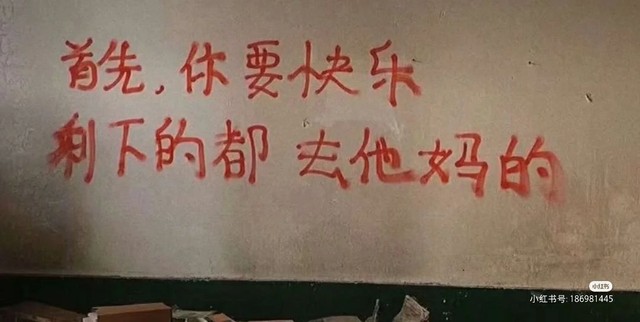 首先,你要快乐
剩下的都 去他妈的
小红书
小红书号: 186981445